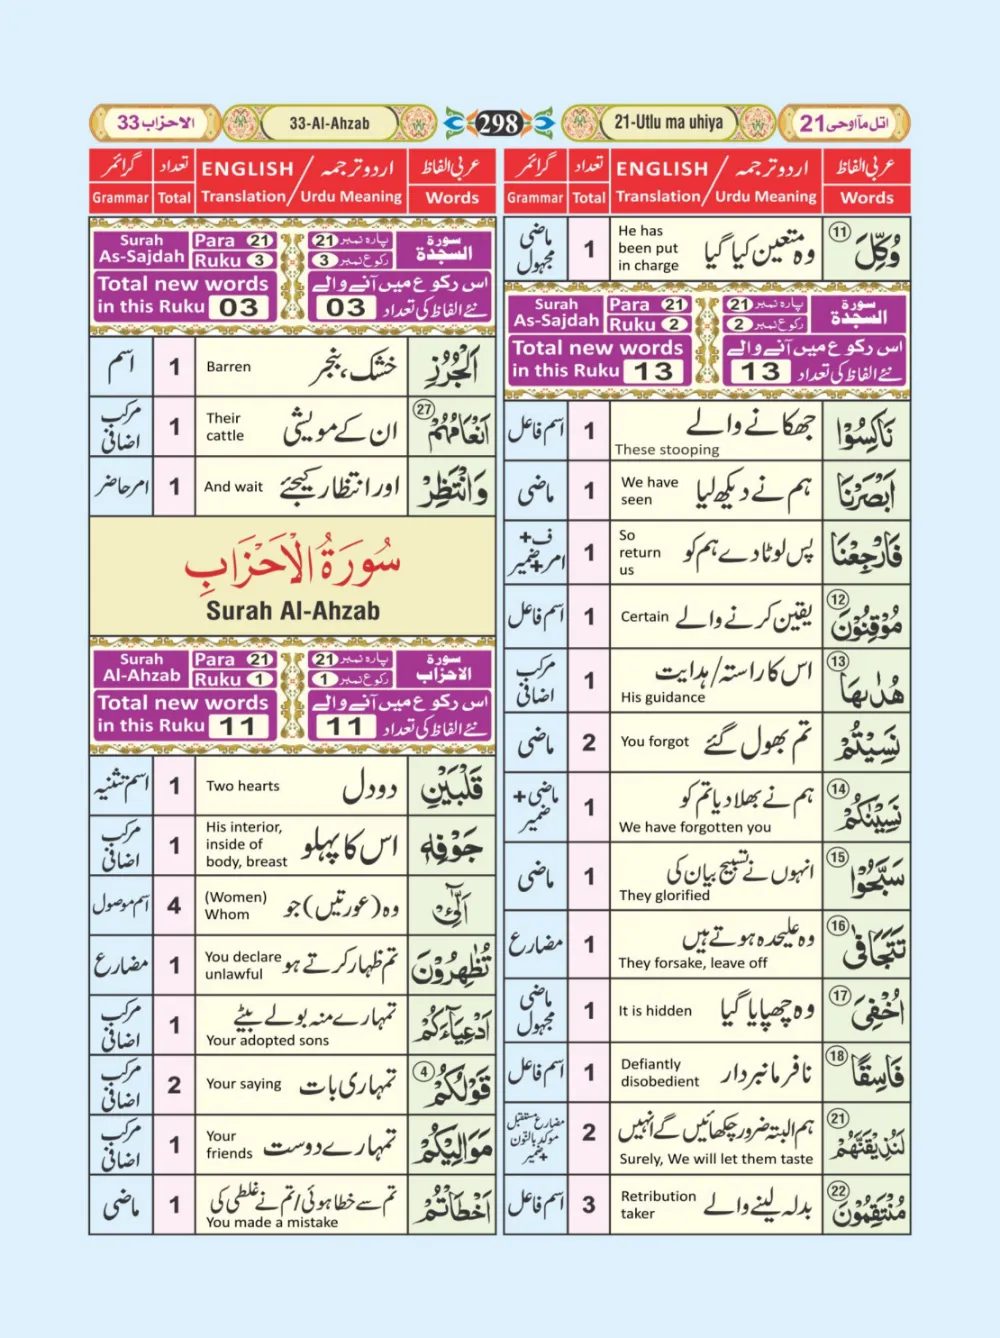 33 الاحزاب
33-Al-Ahzab
298
21-Utlu ma uhiya
اتل مآ اوحی 21
عربی الفاظ
اردو ترجمہ / ENGLISH
تعداد
گرائمر
Words
Urdu Meaning / Translation
Total
Grammar
⑪ وُكِّلَ
وہ متعین کیا گیا
He has been put in charge
1
ماضی مجہول
سورۃ السجدۃ
پارہ نمبر 21
رکوع نمبر 2
Para 21
Ruku 2
Surah As-Sajdah
اس رکوع میں آنے والے نئے الفاظ کی تعداد 13
Total new words in this Ruku 13
نَاكِسُوْا
جھکانے والے
These stooping
1
اسم فاعل
اَبْصَرْنَا
ہم نے دیکھ لیا
We have seen
1
ماضی
فَارْجِعْنَا
پس لوٹا دے ہم کو
So return us
1
ف+ امر+ضمیر
⑫ مُوْقِنُوْنَ
یقین کرنے والے
Certain
1
اسم فاعل
⑬ هُدٰىهَا
اس کا راستہ/ہدایت
His guidance
1
مرکب اضافی
نَسِيْتُمْ
تم بھول گئے
You forgot
2
ماضی
⑭ نَسِيْنٰكُمْ
ہم نے بھلا دیا تم کو
We have forgotten you
1
ماضی+ ضمیر
⑮ سَبَّحُوْا
انہوں نے تسبیح بیان کی
They glorified
1
ماضی
⑯ تَتَجَافٰى
وہ علیحدہ ہوتے ہیں
They forsake, leave off
1
مضارع
⑰ اُخْفِىَ
وہ چھپایا گیا
It is hidden
1
ماضی مجہول
⑱ فَاسِقًا
نافرمانبردار
Defiantly disobedient
1
اسم فاعل
㉑ لَنُذِيْقَنَّهُمْ
ہم البتہ ضرور چکھائیں گے انہیں
Surely, We will let them taste
2
مضارع مستقبل موکد بالنّون +ضمیر
㉒ مُنْتَقِمُوْنَ
بدلہ لینے والے
Retribution taker
3
اسم فاعل
عربی الفاظ
اردو ترجمہ / ENGLISH
تعداد
گرائمر
Words
Urdu Meaning / Translation
Total
Grammar
سورۃ السجدۃ
پارہ نمبر 21
رکوع نمبر 3
Para 21
Ruku 3
Surah As-Sajdah
اس رکوع میں آنے والے نئے الفاظ کی تعداد 03
Total new words in this Ruku 03
الْجُرُزِ
خشک، بنجر
Barren
1
اسم
㉗ اَنْعَامُهُمْ
ان کے مویشی
Their cattle
1
مرکب اضافی
وَانْتَظِرْ
اور انتظار کیجئے
And wait
1
امر حاضر
سُوْرَةُ الْاَحْزَابِ
Surah Al-Ahzab
سورۃ الاحزاب
پارہ نمبر 21
رکوع نمبر 1
Para 21
Ruku 1
Surah Al-Ahzab
اس رکوع میں آنے والے نئے الفاظ کی تعداد 11
Total new words in this Ruku 11
قَلْبَيْنِ
دو دل
Two hearts
1
اسم تثنیہ
جَوْفِهٖ
اس کا پہلو
His interior, inside of body, breast
1
مرکب اضافی
الّٰٓـِٔىْ
وہ (عورتیں) جو
(Women) Whom
4
اسم موصول
تُظٰهِرُوْنَ
تم ظہار کرتے ہو
You declare unlawful
1
مضارع
اَدْعِيَآءَكُمْ
تمہارے منہ بولے بیٹے
Your adopted sons
1
مرکب اضافی
④ قَوْلُكُمْ
تمہاری بات
Your saying
2
مرکب اضافی
مَوَالِيْكُمْ
تمہارے دوست
Your friends
1
مرکب اضافی
اَخْطَاْتُمْ
تم سے خطا ہوئی/تم نے غلطی کی
You made a mistake
1
ماضی